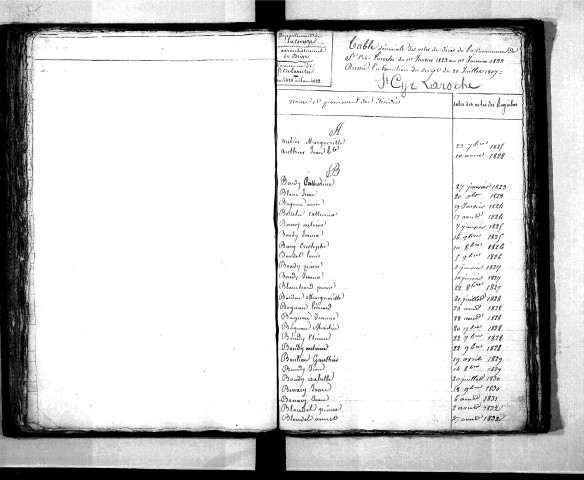 Département de
la Corrèze
arrondissement
de Brive
commune de
St Cir Laroche
Table décennale des actes de décès de la Commune de
St Cir Laroche du 1er Janvier 1823 au 1er Janvier 1833
Dressé en exécution du décret du 20 Juillet 1807
St Cyr Laroche
noms et prénoms des décédés
dates des actes des Registres
A
autier Marguerite 23 7bre 1825
authier Jean Bte 10 avril 1828
B
Boudy Catherine 27 janvier 1823
Blanc Jean 20 9bre 1823
19 Janvier 1824
17 avril 1824
7 janvier 1825
Boudy Jeanne 16 9bre 1825
10 8bre 1826
Bordel louis 5 9bre 1826
Boudy pierre 2 janvier 1827
Boudy Jeanne 10 janvier 1827
Blanchard pierre 22 8bre 1827
Marguerite 21 juillet 1828
Bagnan léonard 26 avril 1828
Bagnan Jeanne 28 avril 1828
Bagnan Martin 20 7bre 1828
Boudy Etienne 22 7bre 1828
Boudy antoine 22 9bre 1828
Gauthier 19 avril 1829
Boudy 14 8bre 1829
Boudy isabelle 20 juillet 1830
Jean 18 9bre 1830
Jean 6 avril 1831
Blondel pierre 2 avril 1832
Blondel anne 27 avril 1832